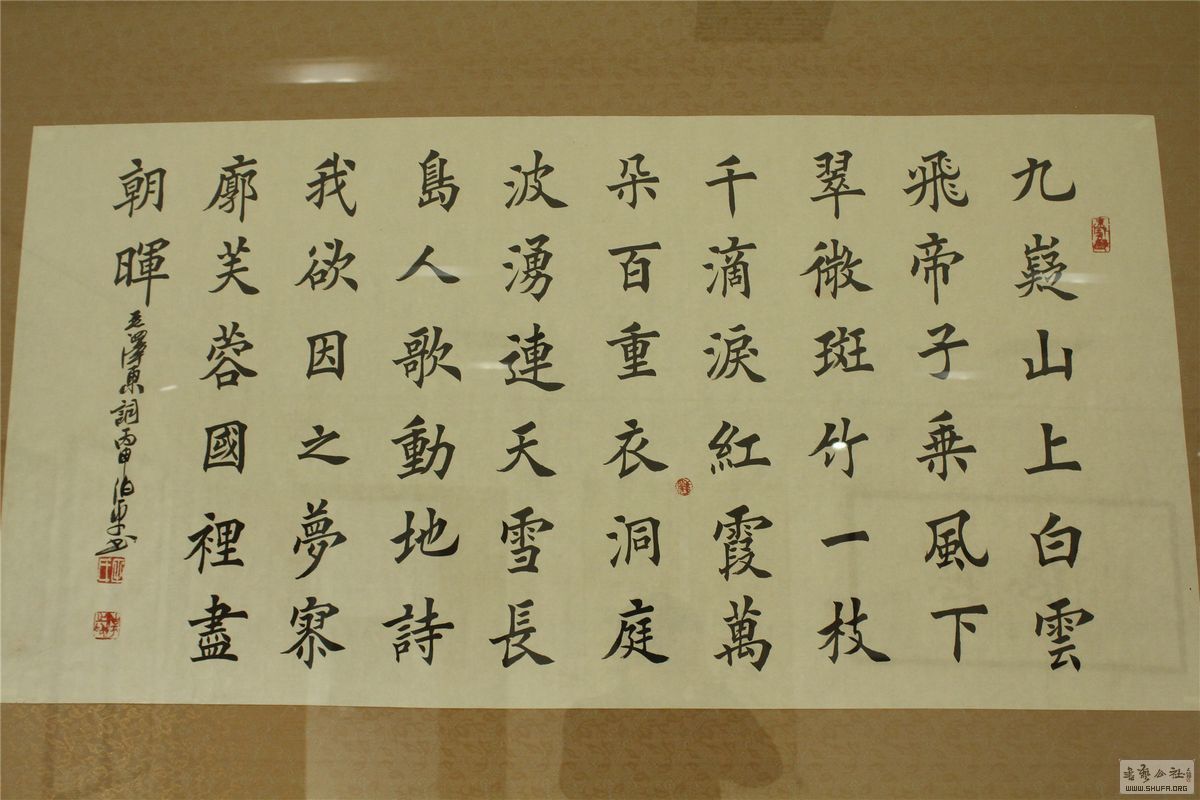 九嶷山上白雲
飛帝子乗風下
翠微斑竹一枝
千滴淚紅霞萬
朵百重衣洞庭
波湧連天雪長
島人歌動地詩
我欲因之夢寥
廓芙蓉國裡盡
朝暉
毛澤東詞丙申
書法公社
WWW.SHUFA.ORG